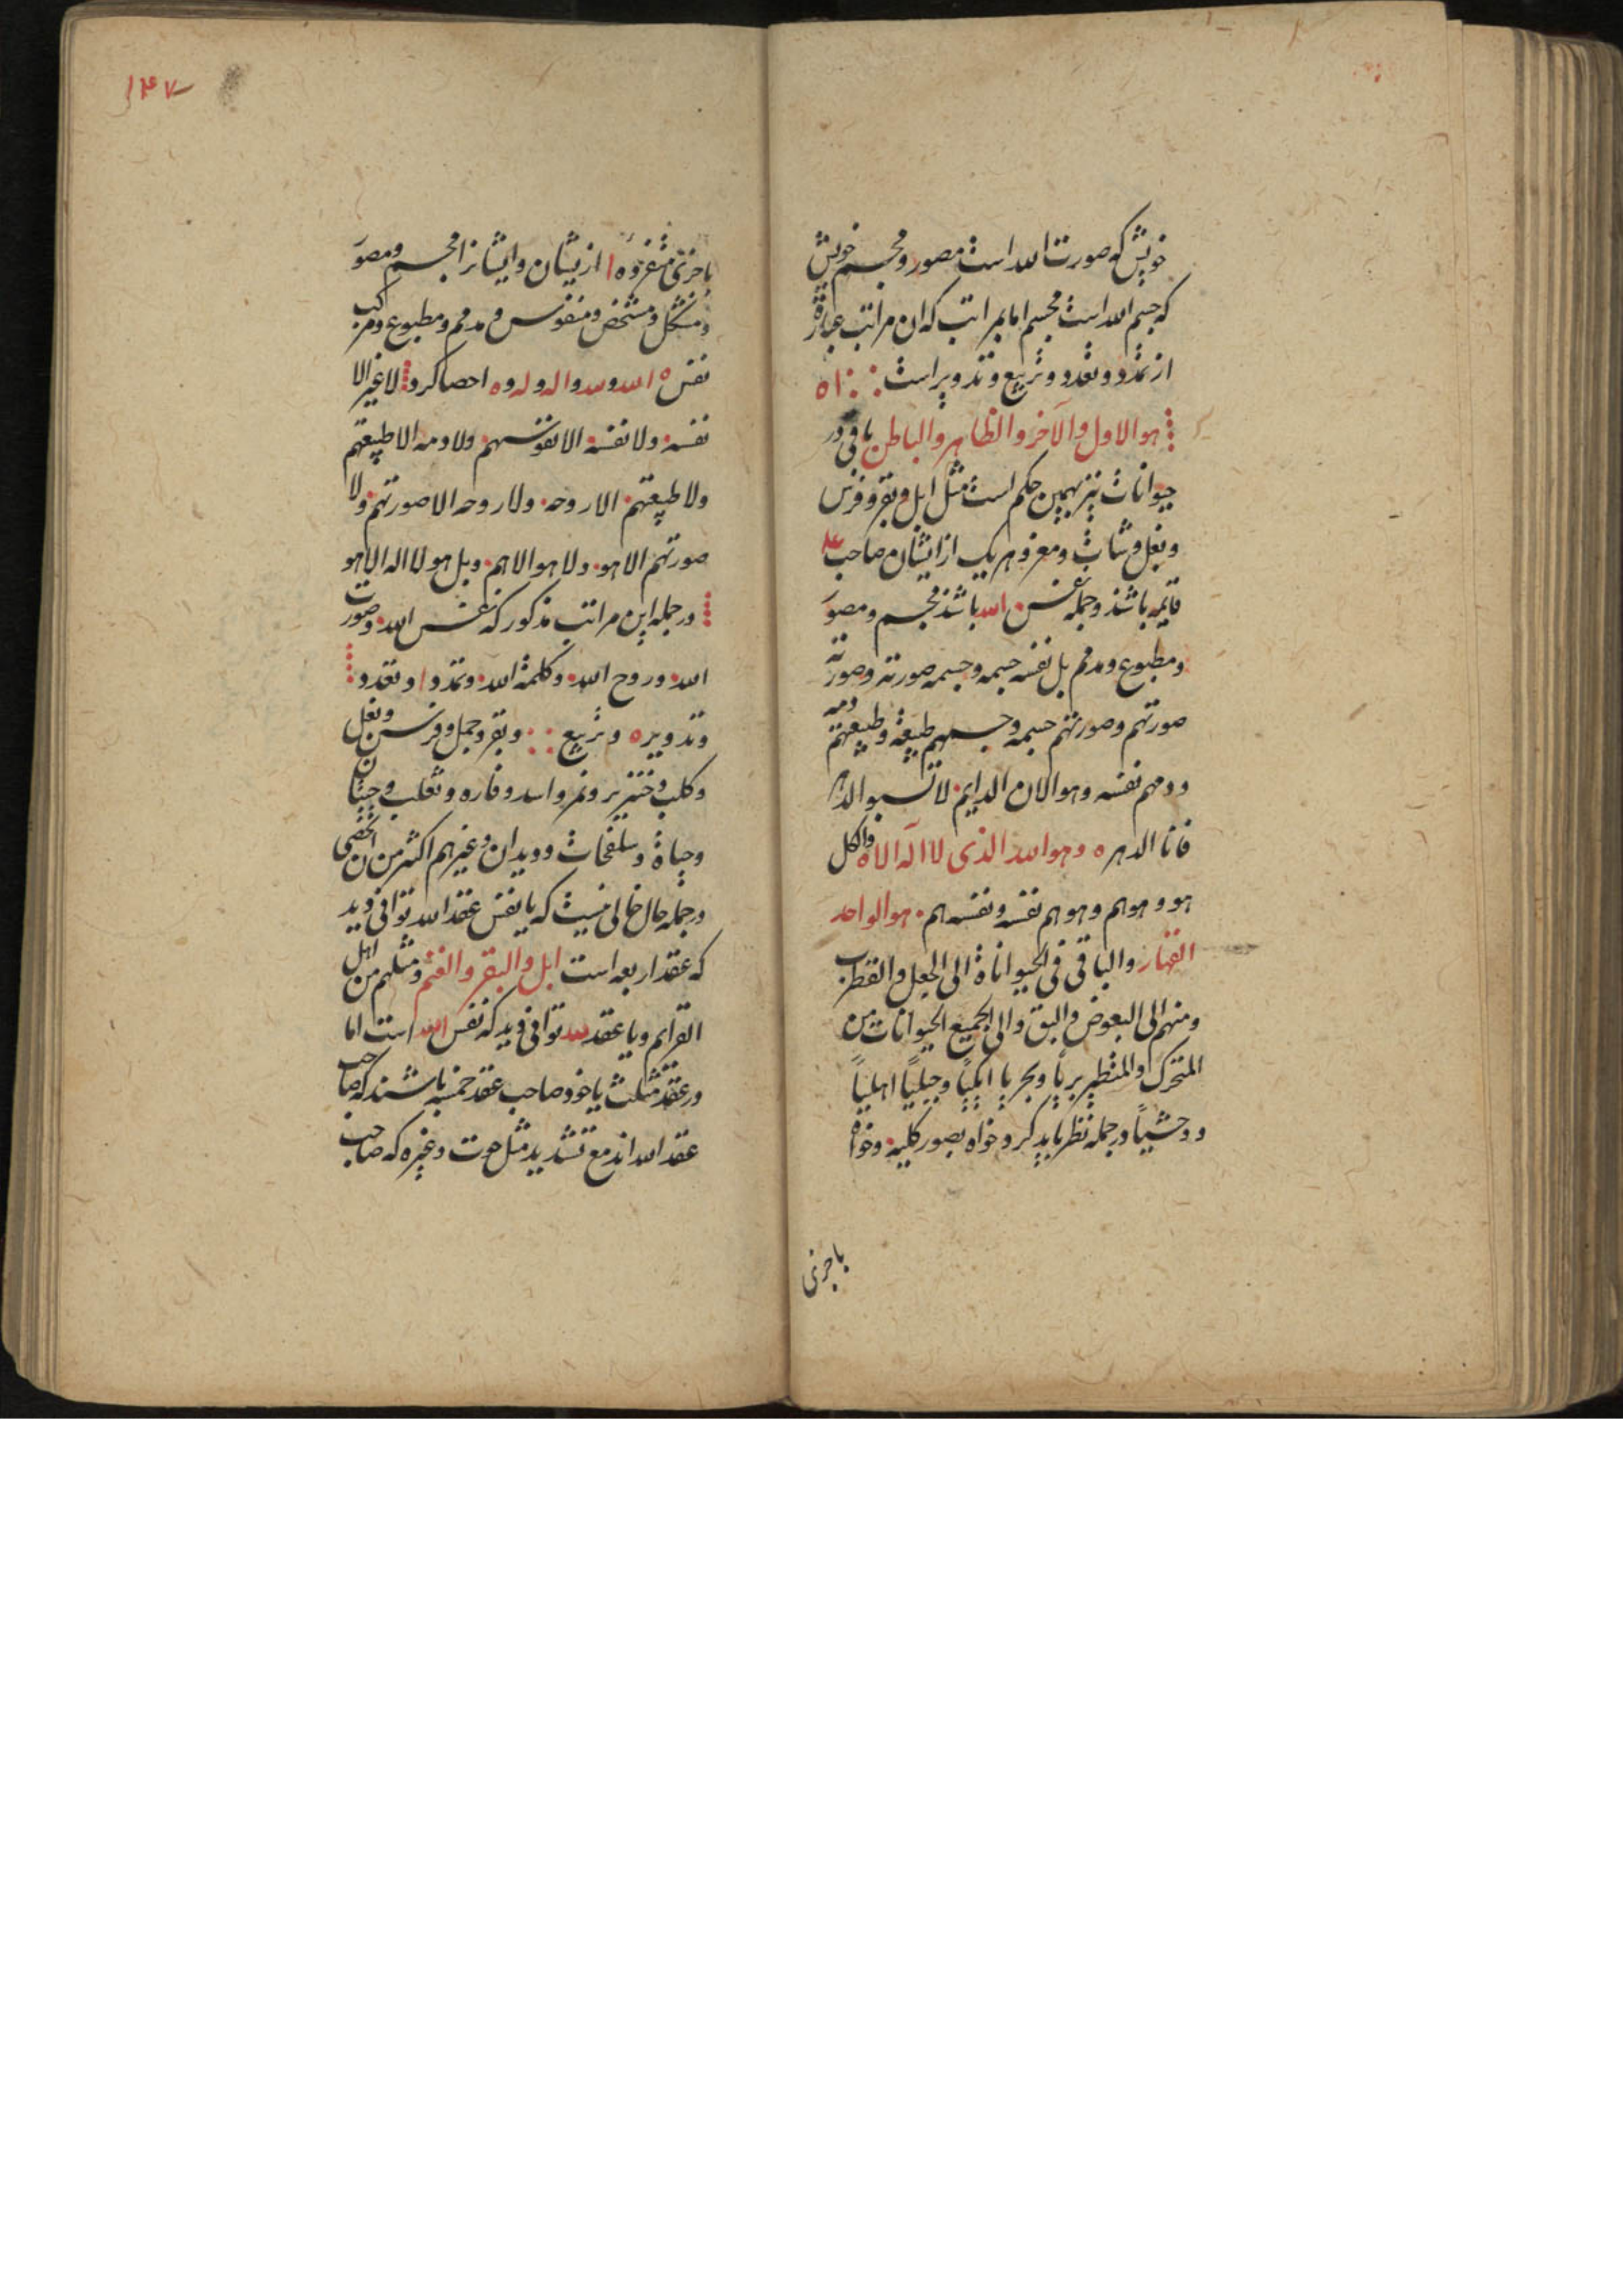 خویش که صورت الله است مصور و مجسم خویش
که جسم الله است مجسم اما بمراتب که ان مراتب عبارة
از تمدد و تعدد و تربیع و تدویر است ا ه
هو الاول والآخر والظاهر والباطن باقی در
حیوانات نیز بهمین حکم است مثل ابل و بقر و فرس
و بغل و شاث و معز و هریک از ایشان صاحب عـ
قایمه باشند و جمله نفس الله باشند مجسم و مصور
و مطبوع و مدمم بل نفسه جسمه و جسمه صورته و صورته
صورتهم و صورتهم جسمه و جسمهم طبیعته و طبیعتهم دمه
و دمهم نفسه و هو الان الدایم لا تسبو الدهر
فانا الدهر ه و هو الله الذی لا اله الا ه والکل
هو و هو هم و هو هم نفسه و نفسه هم هو الواحد
القهار والباقی فی الحیواناة الی الجعل والقطرب
ومنهم الی البعوض والبق والی الجمیع الحیوانات من
المتحرک او المتطیر بریا و بحریا ایکیا و جبلیا اهلیا
و وحشیا در جمله نظر باید کرد خواه بصور کلیه و خواه
باجزئی
۱۴۷
باجزئی متفرده ا از یشان و ایشانرا مجسم و مصور
و مشکل و مشخص و منفوس و مدمم و مطبوع و مرکب
نفس ه الله و لله و اله و له و ه احصا کرد لا غیر الا
نفسه ولا نفسه الا نفوسهم ولا دمه الا طبیعتهم
ولا طبیعتهم الا روحه ولا روحه الا صورتهم ولا
صورتهم الا هو ولا هو الا هم و بل هو لا اله الا هو
در جمله این مراتب مذکور که نفس الله و صورت
الله و روح الله و کلمة الله و تمدد ا و تعدد
و تدویر ه و تربیع و بقر و جمل و فرس و بغل
و کلب و خنزیر و نمر و اسد و فاره و ثعلب و حیتان
و حیاة و سلفحات و دیدان و غیرهم اکثر من ان تحصی
در جمله حال خالی نیست که یا نفس عقد الله توافی دید
که عقد اربعه است ابل والبقر والغنم و مثلهم من اهل
القوایم و یا عقد لله توافی دید که نفس الله است اما
در عقد مثلث یا خود صاحب عقد خمسه باشند که صاحب
عقد الله اند مع تشدید مثل حوت و غیره که صاحب